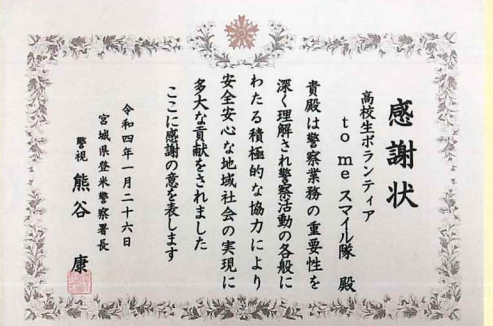 感謝状
高校生ボランティア
tomeスマイル隊 殿
貴殿は警察業務の重要性を
深く理解され警察活動の各般に
わたる積極的な協力により
安全安心な地域社会の実現に
多大な貢献をされました
ここに感謝の意を表します
令和四年一月二十六日
宮城県登米警察署長
警視 熊谷 康